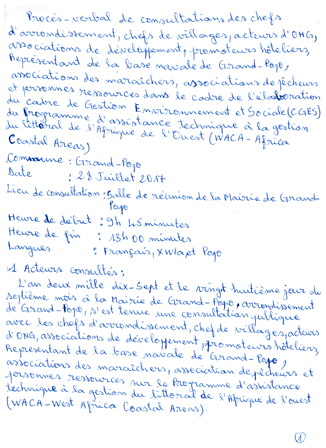 Procès-verbal de consultations des chefs
d'arrondissement, chefs de villages, acteurs d'ONG,
associations de développement, promoteurs hôteliers,
Représentant de la base navale de Grand-Popo,
associations des maraîchers, associations de pêcheurs
et personnes ressources dans le cadre de l'élaboration
du cadre de Gestion Environnement et Sociale (CGES)
du Programme d'assistance technique à la gestion
du littoral de l'Afrique de l'Ouest (WACA - Africa
Coastal Areas)
Commune : Grand-Popo
Date : 28 Juillet 2017
Lieu de consultation : Salle de réunion de la Mairie de Grand-
Popo
Heure de début : 9h 45 minutes
Heure de fin : 13h 00 minutes
Langues : Français, Xwla et Popo
1 Acteurs consultés :
L'an deux mille dix-Sept et le vingt huitième jour du
septième mois à la Mairie de Grand-Popo, arrondissement
de Grand-Popo, s'est tenue une consultation publique
avec les chefs d'arrondissement, chefs de villages, acteurs
d'ONG, associations de développement, promoteurs hôteliers,
Représentant de la base navale de Grand-Popo,
associations des maraîchers, association de pêcheurs et
personnes ressources sur le Programme d'assistance
technique à la gestion du littoral de l'Afrique de l'ouest
(WACA-West Africa Coastal Areas).
1